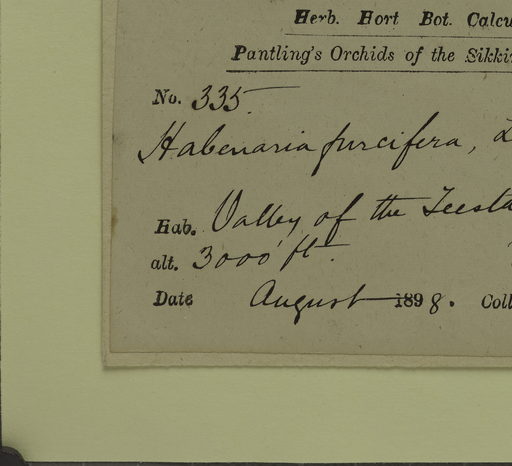 Herb. Hort Bot. Calcu
Pantling's Orchids of the Sikki
No. 335.
Habenaria furcifera, L
Hab. Valley of the Teesta
alt. 3000 ft.
Date August 1898. Coll